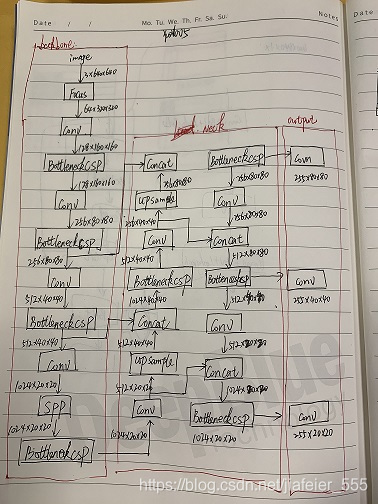 Date / /
Mo. Tu. We. Th. Fr. Sa. Su.
Notes
Da
yolov5
backbone
image
3×640×640
Focus
64×320×320
Conv
128×160×160
BottleneckCSP
128×160×160
Conv
256×80×80
BottleneckCSP
256×80×80
Conv
512×40×40
BottleneckCSP
512×40×40
Conv
1024×20×20
SPP
1024×20×20
BottleneckCSP
neck
Concat
256×80×80
UPSample
256×40×40
Conv
512×40×40
BottleneckCSP
1024×40×40
Concat
512×40×40
UPSample
512×20×20
Conv
1024×20×20
BottleneckCSP
256×80×80
Conv
256×80×80
Concat
512×80×80
BottleneckCSP
Conv
512×20×20
Concat
1024×20×20
BottleneckCSP
1024×20×20
output
Conv
255×80×80
Conv
255×40×40
Conv
255×20×20
https://blog.csdn.net/jiafeier_555